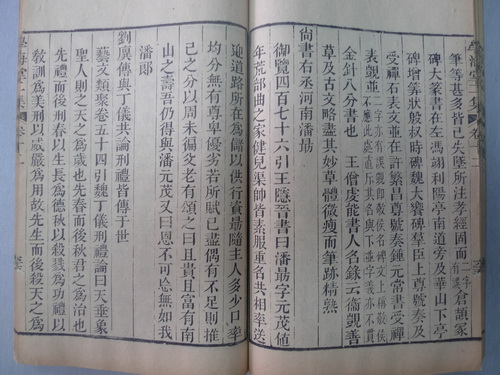 筆等甚多皆已失墜所注孝經因而倉頡冢
碑大篆書在左馮翊利陽亭南道旁及華山下亭
碑金筭狀般叔時碑魏大饗碑羣臣上尊號奏及
受禪石表文並在許繁昌尊號奏鍾元常書受禪
表覬並
金針八分書也 王僧虔能書人名錄云衞覬善
草及古文略盡其妙草體微瘦而筆跡精熟
尚書右丞河南潘朂
御覽四百七十六引王隱晉書曰潘朂字元茂值
年荒部曲之家健兒渠帥皆素服重名共相率送
迎道路所在為儲以供行資朂隨主人多少口率
均分無有尊卑優劣若所賦已盡偶有不足則推
己之分以周未徧父老有頌之曰且貴且富有南
山之壽吾仍得與潘元茂又曰恩不可忘無如我
潘郎
劉廙傳與丁儀共論刑禮皆傳于世
藝文類聚卷五十四引魏丁儀刑禮論曰天垂象
聖人則之天之為歲也先春而後秋君之為治也
先禮而後刑春以生長為德秋以殺戮為功禮以
教訓為美刑以威嚴為用故先生而後殺天之為